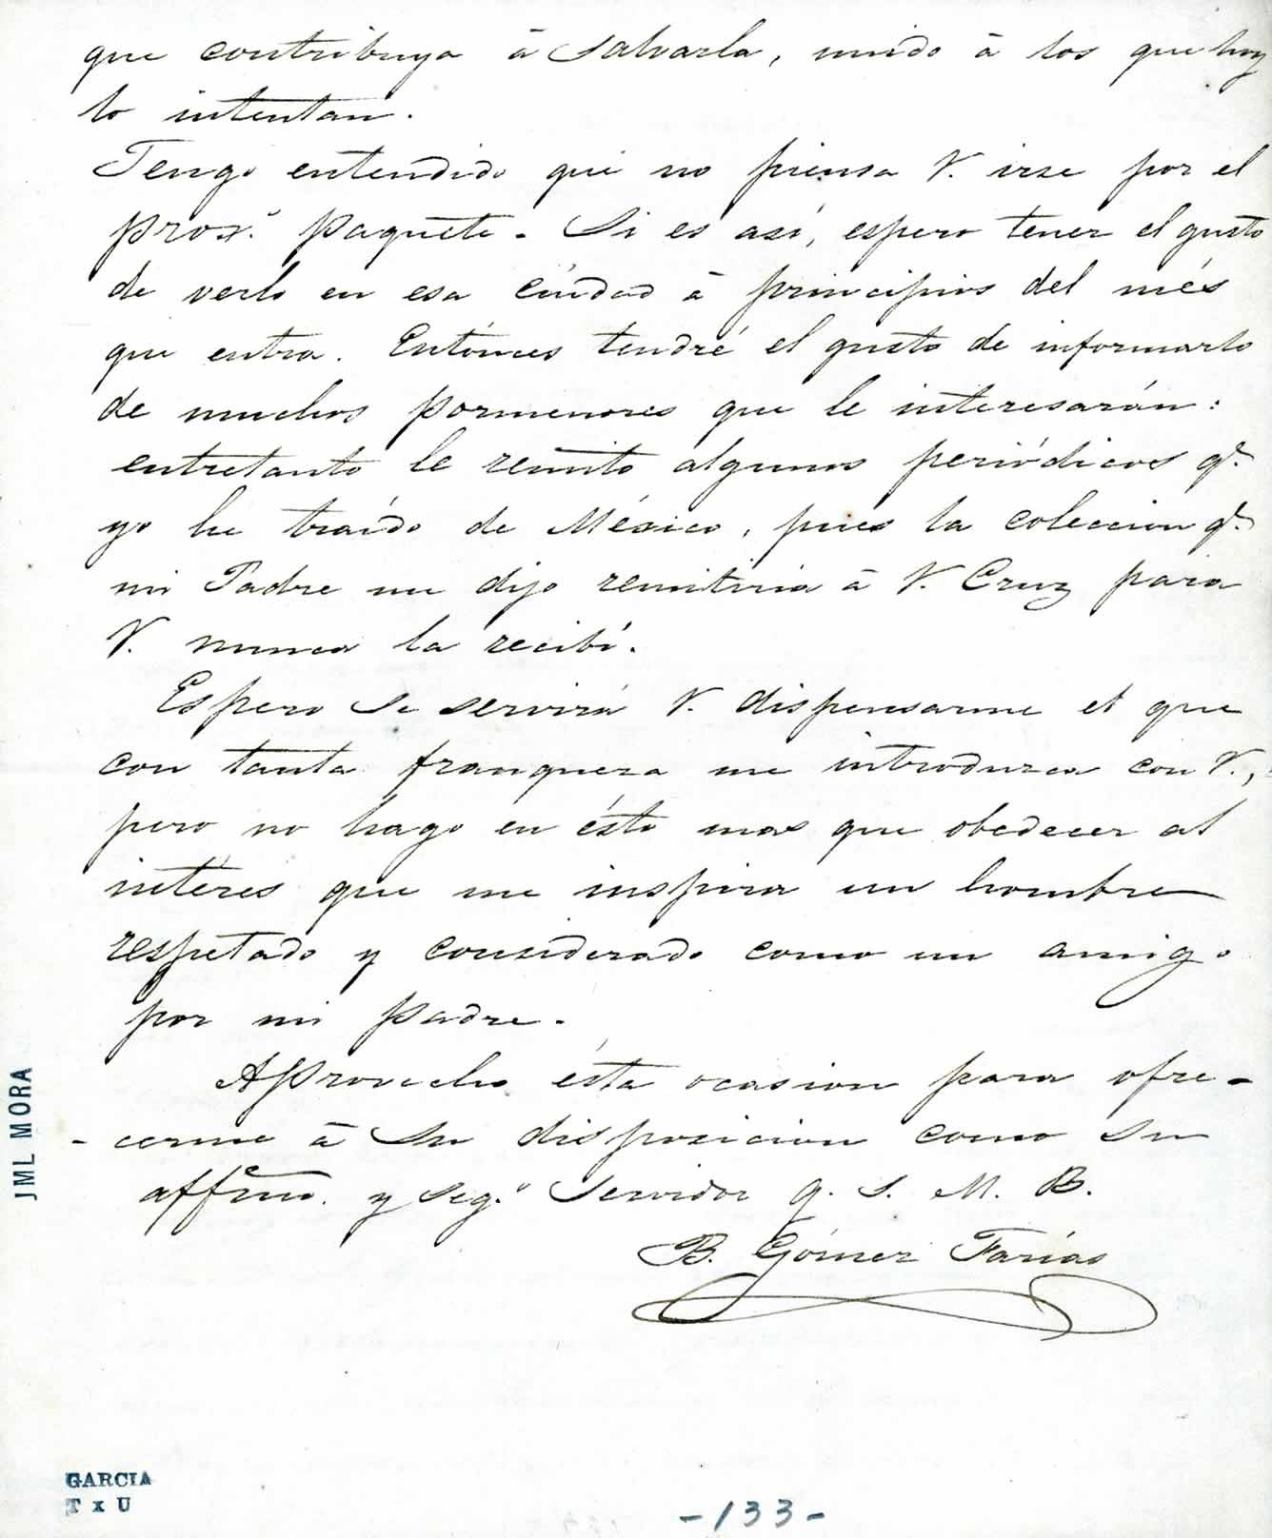 que contribuya á salvarla, unido á los que hoy
lo intentan.
Tengo entendido que no piensa V. irse por el
proxº. paquete. Si es así, espero tener el gusto
de verlo en esa ciudad á principios del més
que entra. Entónces tendré el gusto de informarlo
de muchos pormenores que le interesarán:
entretanto le remito algunos periódicos q.e
yo he traído de México, pues la coleccion q.e
mi Padre me dijo remitiria á V. Cruz para
V. nunca la recibí.
Espero se servirá V. dispensarme el que
con tanta franqueza me introduzca con V.,
pero no hago en ésto mas que obedecer al
interes que me inspira un hombre
respetado y considerado como un amigo
por mi padre.
Aprovecho ésta ocasion para ofre-
-cerme á su disposicion como su
affmo. y seg.º servidor q. s. M. B.
B. Gómez Farías
JML MORA
GARCIA
T x U
-133-